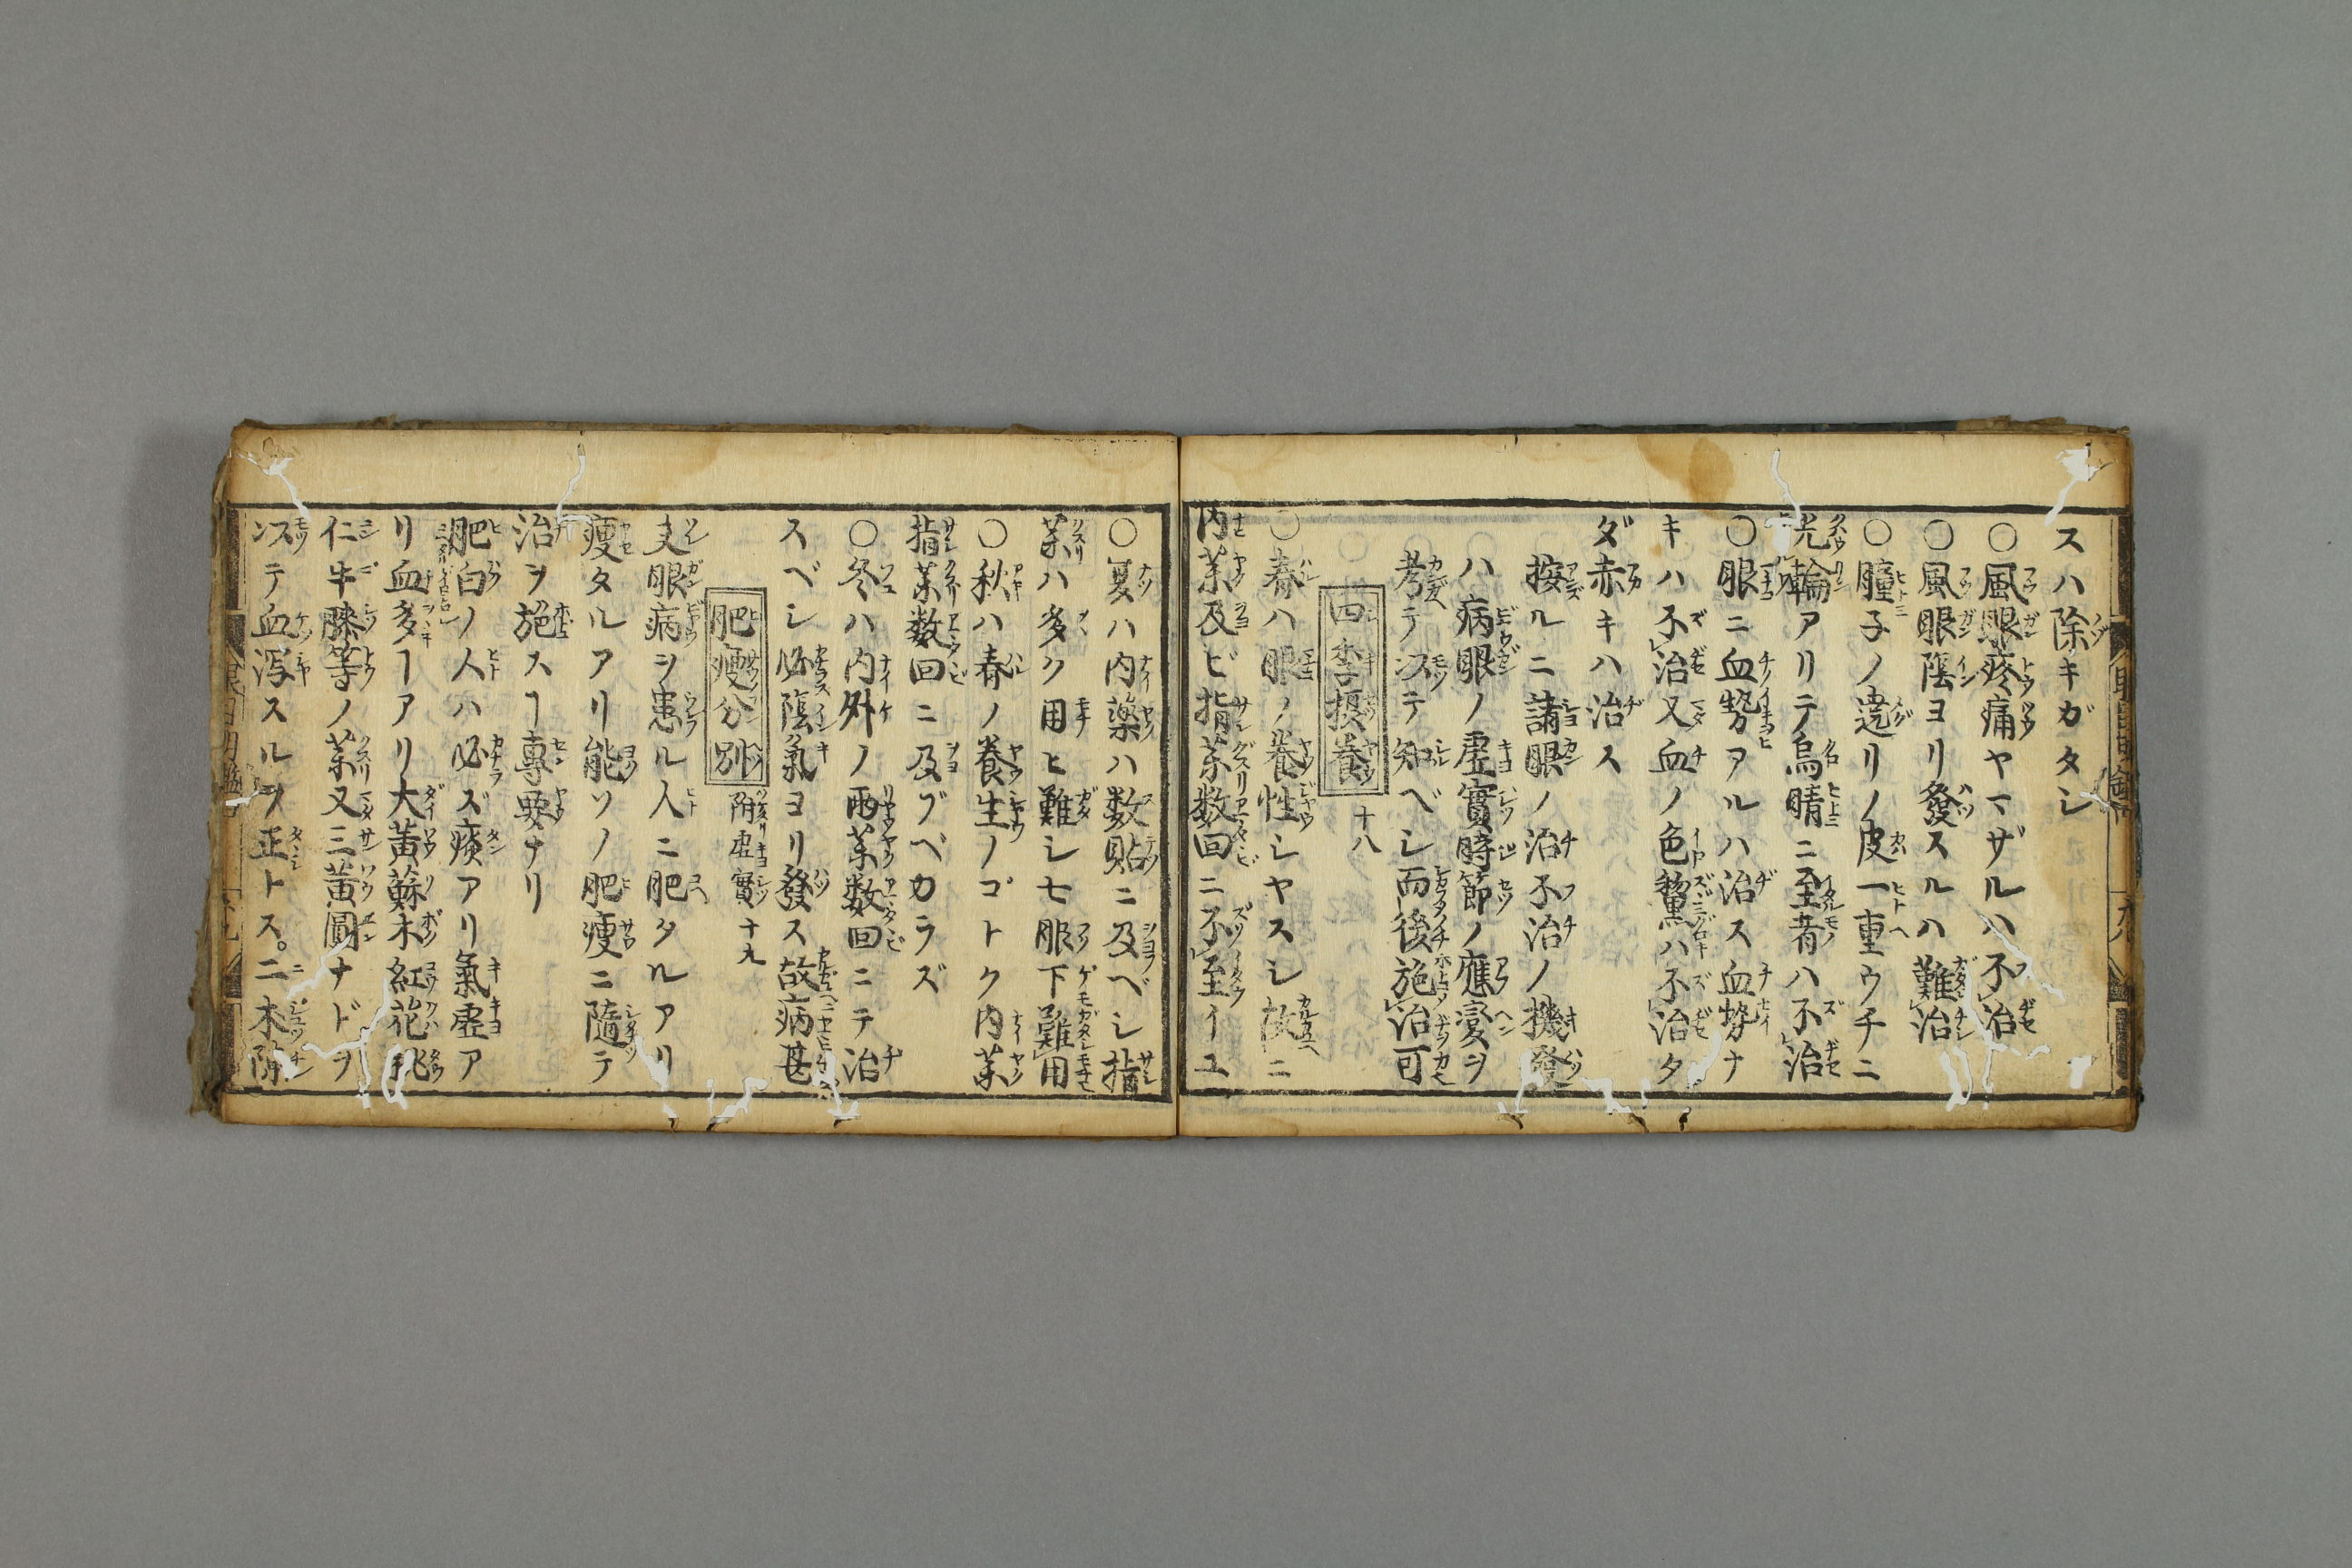 スハ除キガタシ
〇風眼疼痛ヤマザルハ不治
〇風眼陰ヨリ發スルハ難治
〇瞳子ノ遶リノ皮一重ウチニ
光輪アリテ烏睛ニ至者ハ不治
〇眼ニ血勢アルハ治ス血勢ナ
キハ不治又血ノ色黧ハ不治タ
ダ赤キハ治ス
按ルニ諸眼ノ治不治ノ機發
ハ病眼ノ虚實時節ノ應変ヲ
考テ以テ知ベシ而後施治可
四季摂養 十八
〇春ハ眼ノ養性シヤスシ故ニ
内茱及ビ指茱数回ニ不至イユ
〇夏ハ内藥ハ数貼ニ及ベシ指
茱ハ多ク用ヒ難シ七服下難用
〇秋ハ春ノ養生ノゴトク内茱
指茱数回ニ及ブベカラズ
〇冬ハ内外ノ兩茱数回ニテ治
スベシ必陰氣ヨリ發ス故病甚
肥痩分別 附虚實 十九
夫眼病ヲ患ル人ニ肥タルアリ
痩タルアリ能ソノ肥痩ニ隨テ
治ヲ施スヿ專要ナリ
肥白ノ人ハ必ズ痰アリ氣虚ア
リ血多ヿアリ大黄蘇木紅花桃
仁牛膝等ノ茱又三黄圓ナドヲ
以テ血泻スルヲ正トス。二木陳